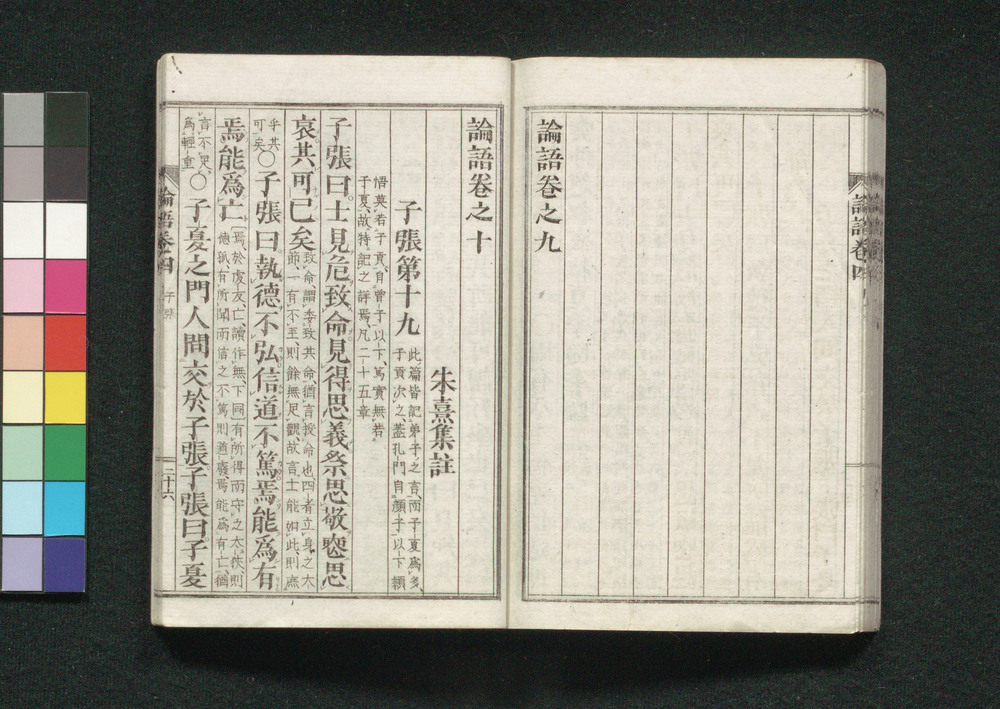 論語卷之九
論語卷四
論語卷之十
朱熹集註
子張第十九
此篇皆記弟子之言、而子夏爲多、
子貢次之、蓋孔門自顏子以下、穎
悟莫若子貢、自曾子以下、篤實無若
子夏、故特記之詳焉、凡二十五章
子張曰士見危致命見得思義祭思敬喪思
哀其可已矣
致命、謂委致其命、猶言授命也、四者立身之大
節、一有不至、則餘無足觀、故言士能如此、則庶
乎其
可矣
○子張曰執德不弘信道不篤焉能爲有
焉能爲亡
焉、於虔反、亡、讀作無、下同、有所得而守之太狹、則
德孤、有所聞而信之不篤、則道廢、焉能爲有亡、猶
言不足
爲輕重
○子夏之門人問交於子張子張曰子夏
論語卷四
二十六